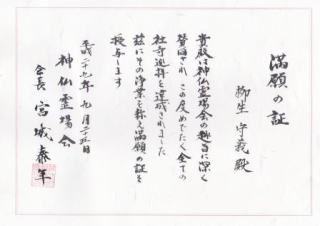 満願の証
柳生守義殿
貴殿は神仏霊場会の趣旨に深く
賛同され この度めでたく全ての
社寺巡拝を達成されました
茲にその浄業を称え満願の証を
授与します
平成二十九年九月二十五日
神仏霊場会
会長 宮城泰年